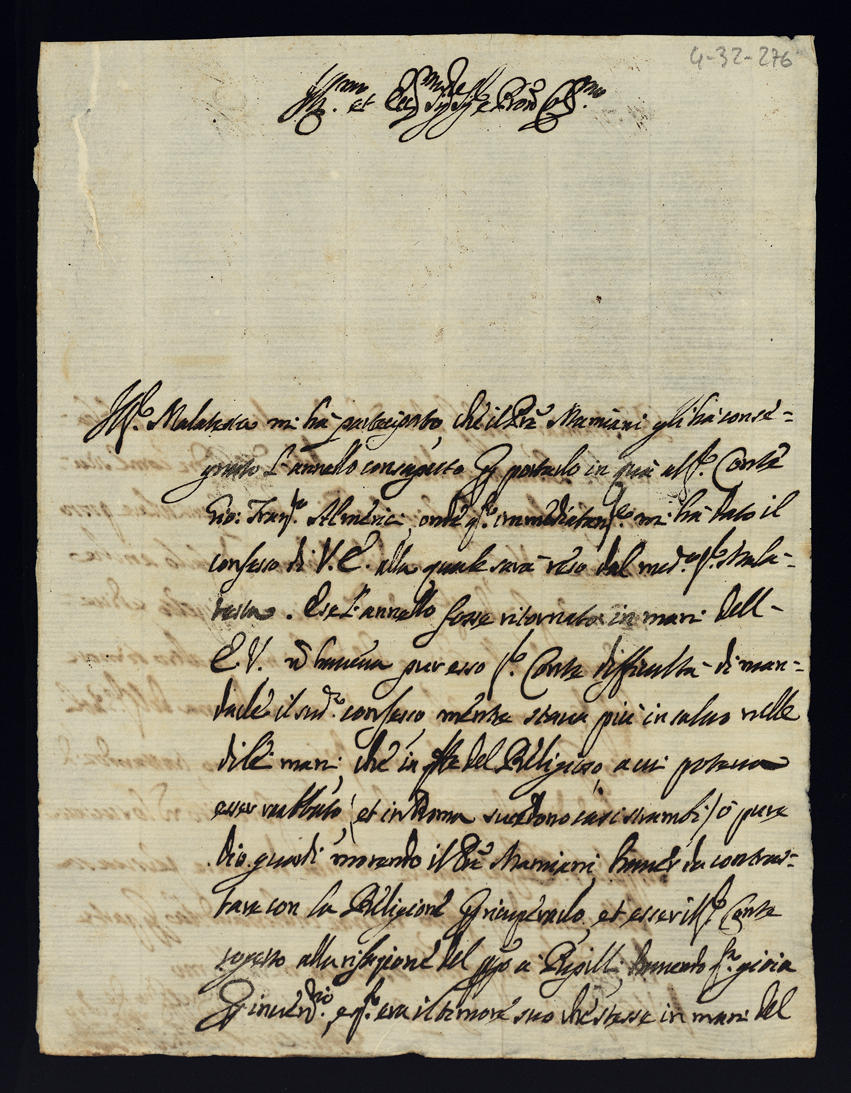 4-32-276
Ill.mo et Ecc.mo Sig.re Sig.re e Pron Col.mo
Il S.r Malatesta mi hà partecipato, che il P.re Mamiani gli hà conse=
gnato l'annello consaputo p portarlo in quà al S.r Conte
Gio: Fran.co Almerici, onde q.to immediatam.te mi hà dato il
confesso di V.E. alla quale sarà reso dal med.o S.r Mala=
testa. E se l'annello fosse ritornato in mani dell-
E.V. n haueua pur esso S.r Conte difficultà di man=
darle il sud.o confesso, mentre staua più in saluo nelle
di lei mani, che in q.lle del Religioso, a cui poteua
esser rubbato (et in Roma succedono casi strambi) ò pure
Dio guardi morendo il P.re Mamiani, hauer da contras=
tare con la Religione p ricuperarlo, et esser il S.r Conte
sogetto alla rifazione del p a Pupilli, hauendo gioia
p inuent.rio, e q.to era il timore suo che stesse in mani del